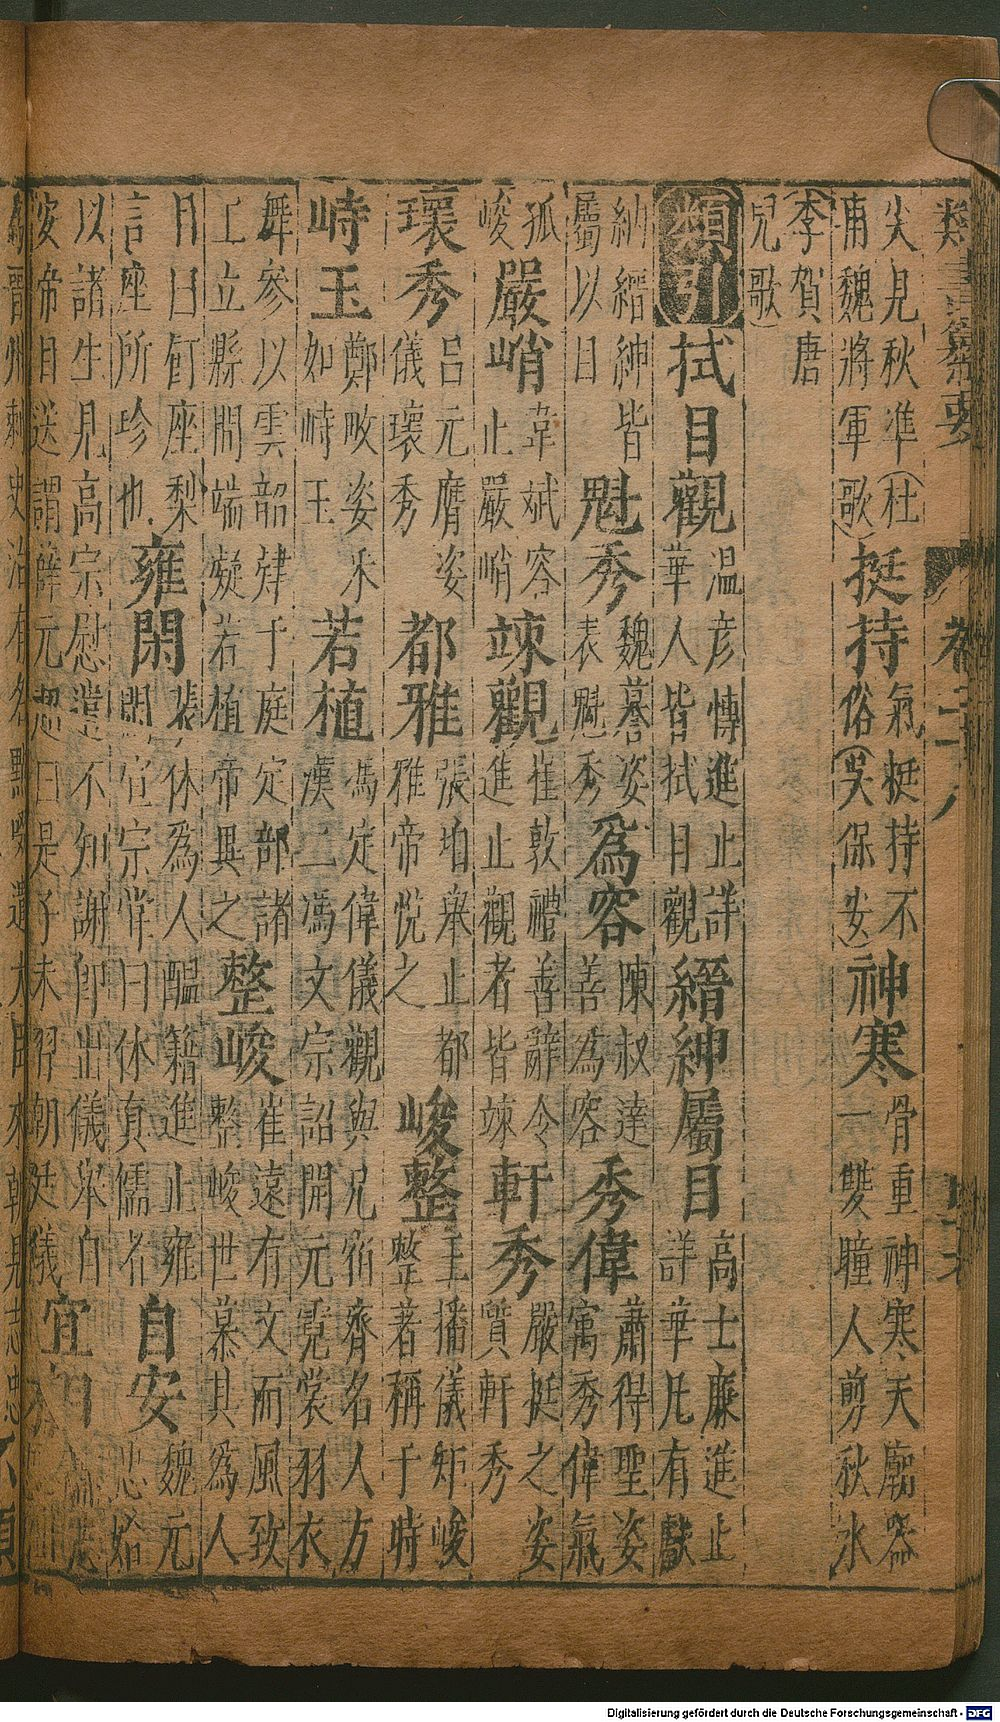 類書纂要
卷二十八
尖見秋準(杜
甫魏將軍歌)
挺持
氣挺持不
俗(吳保安)
神寒
骨重神寒天廟器
一雙瞳人剪秋水
(李賀唐
兒歌)
類引
拭目觀
溫彥博進止詳
華人皆拭目觀
縉紳屬目
高士廉進止
詳華凡有獻
納縉紳皆
屬以目
魁秀
魏謩姿
表魁秀
爲容
陳叔達
善為容
秀偉
蕭得聖姿
寓秀偉氣
孤
峻
嚴峭
韋斌容
止嚴峭
竦觀
崔敦禮善辭令
進止觀者皆竦
軒秀
嚴挺之姿
質軒秀
瓌秀
呂元膺姿
儀瓌秀
都雅
張垍舉止都
雅帝悅之
峻整
王播儀矩峻
整著稱于時
峙玉
鄭畋姿采
如峙玉
若植
馮定偉儀觀與兄宿齊名人方
漢二馮文宗詔開元霓裳羽衣
舞參以雲韶肄于庭定部諸
工立縣間端凝若植帝異之
整峻
崔遠有文而風致
整峻世慕其為人
目曰飣座梨
言座所珍也
雍閑
裴休為人醞籍進止雍
閑宣宗常曰休真儒者
自安
魏元
忠始
以諸生見高宗慰遣不知謝即出儀舉自
安帝目送謂薛元超曰是子未習朝廷儀
宜